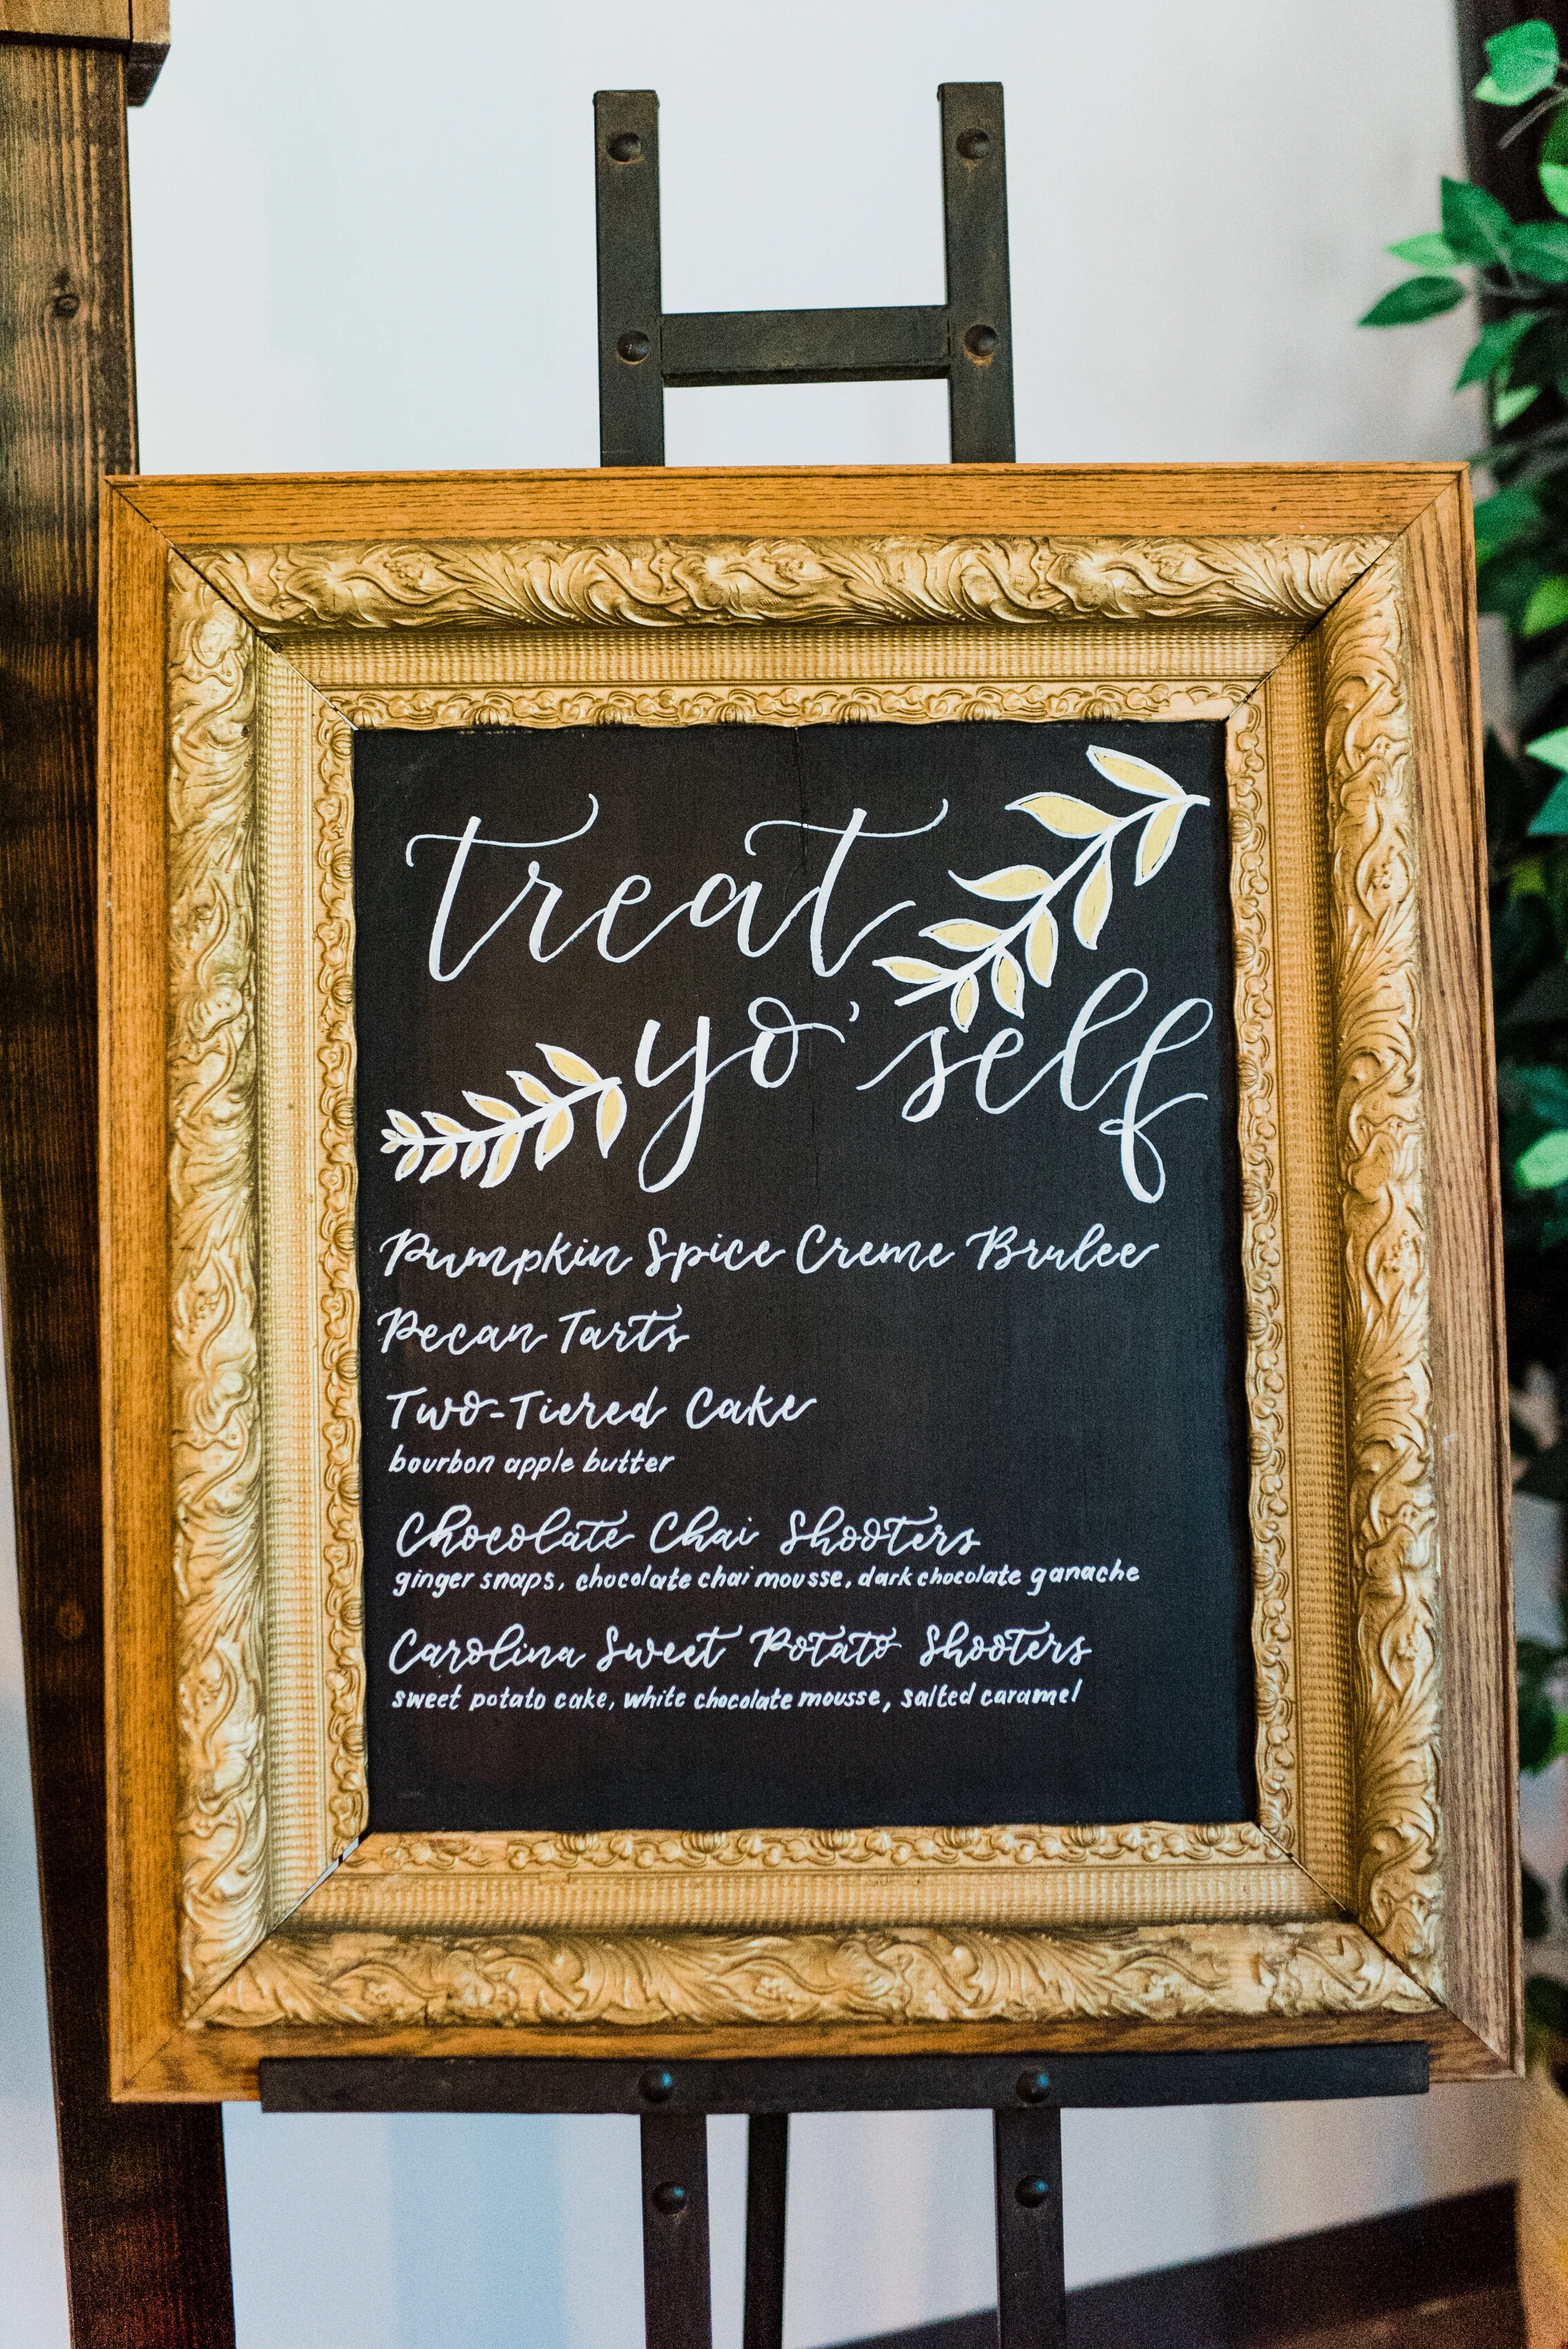 treat
yo' self
Pumpkin Spice Creme Brulee
Pecan Tarts
Two-Tiered Cake
bourbon apple butter
Chocolate Chai Shooters
ginger snaps, chocolate chai mousse, dark chocolate ganache
Carolina Sweet Potato Shooters
sweet potato cake, white chocolate mousse, salted caramel